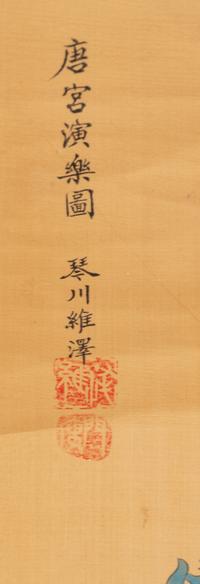 唐宮演樂圖
琴川維澤